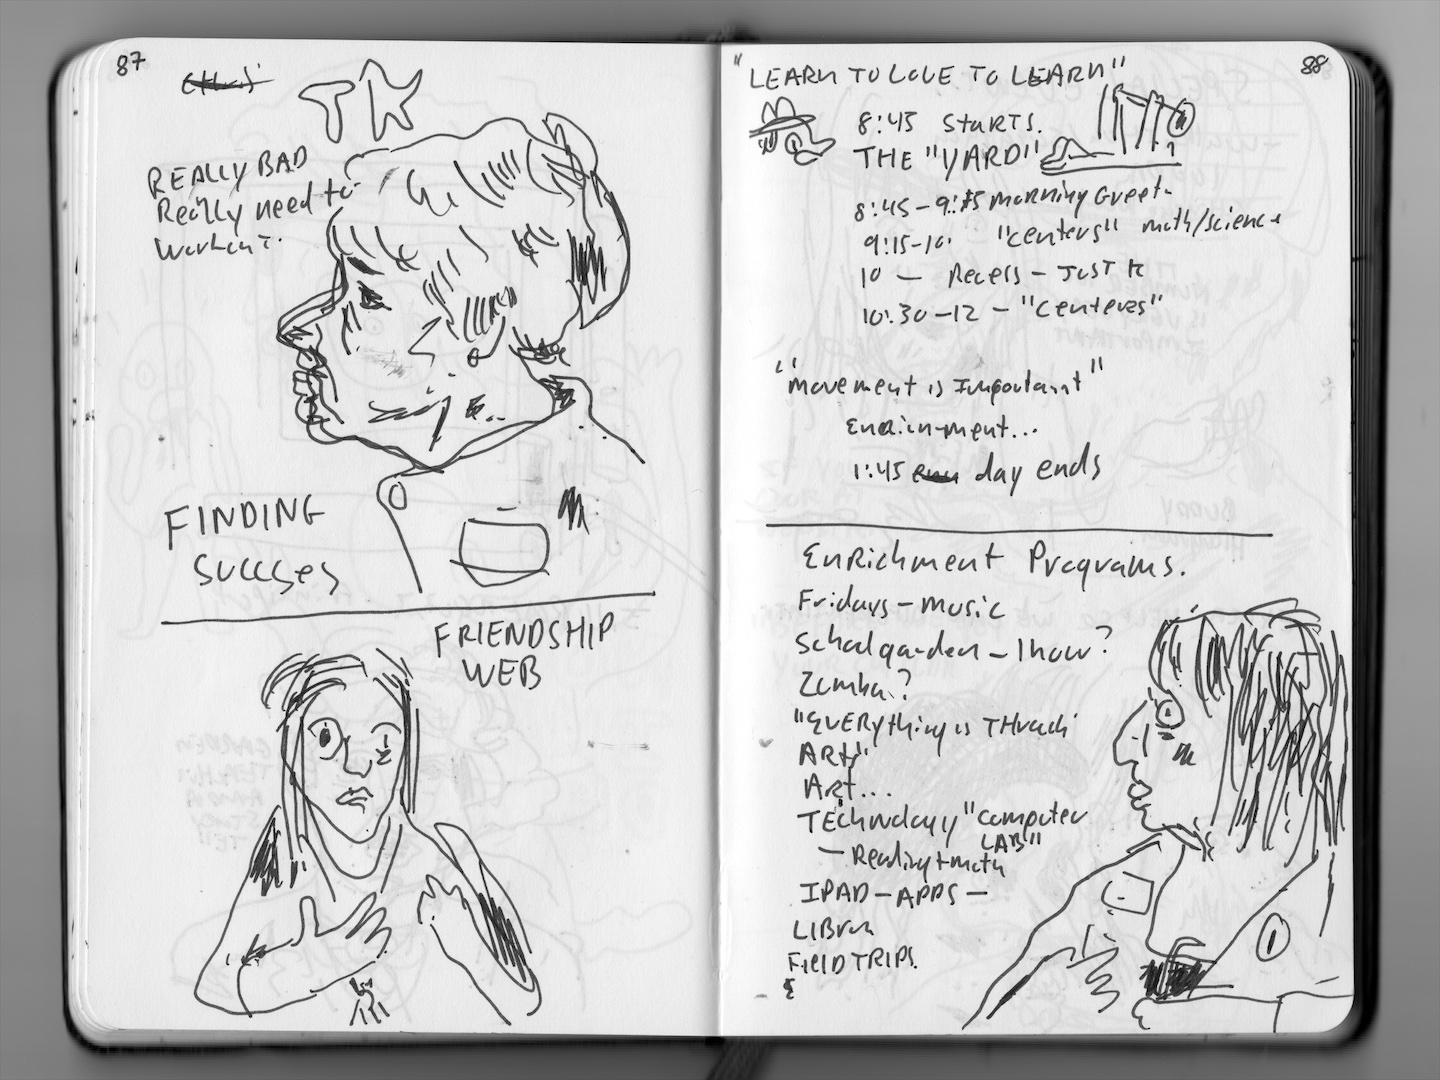 87
TK
REALLY BAD
Really need to
workout.
FINDING
SUCCSES
FRIENDSHIP
WEB
88
"LEARN TO LOVE TO LEARN"
8:45 STARTS.
THE "YARD"
8:45-9:15 morning Greet-
9:15-10: "centers" math/science
10 — Recess - JUST K
10:30-12 - "Centers"
"movement is Important"
1:45 day ends
Enrichment Programs.
Fridays - music
School garden - 1 hour?
Zumba?
"EVERYthing is THROUGH
ART"
Art...
TEchnology "computer
LAB"
- Reading + math
IPAD - APPS -
FIELD TRIPS.